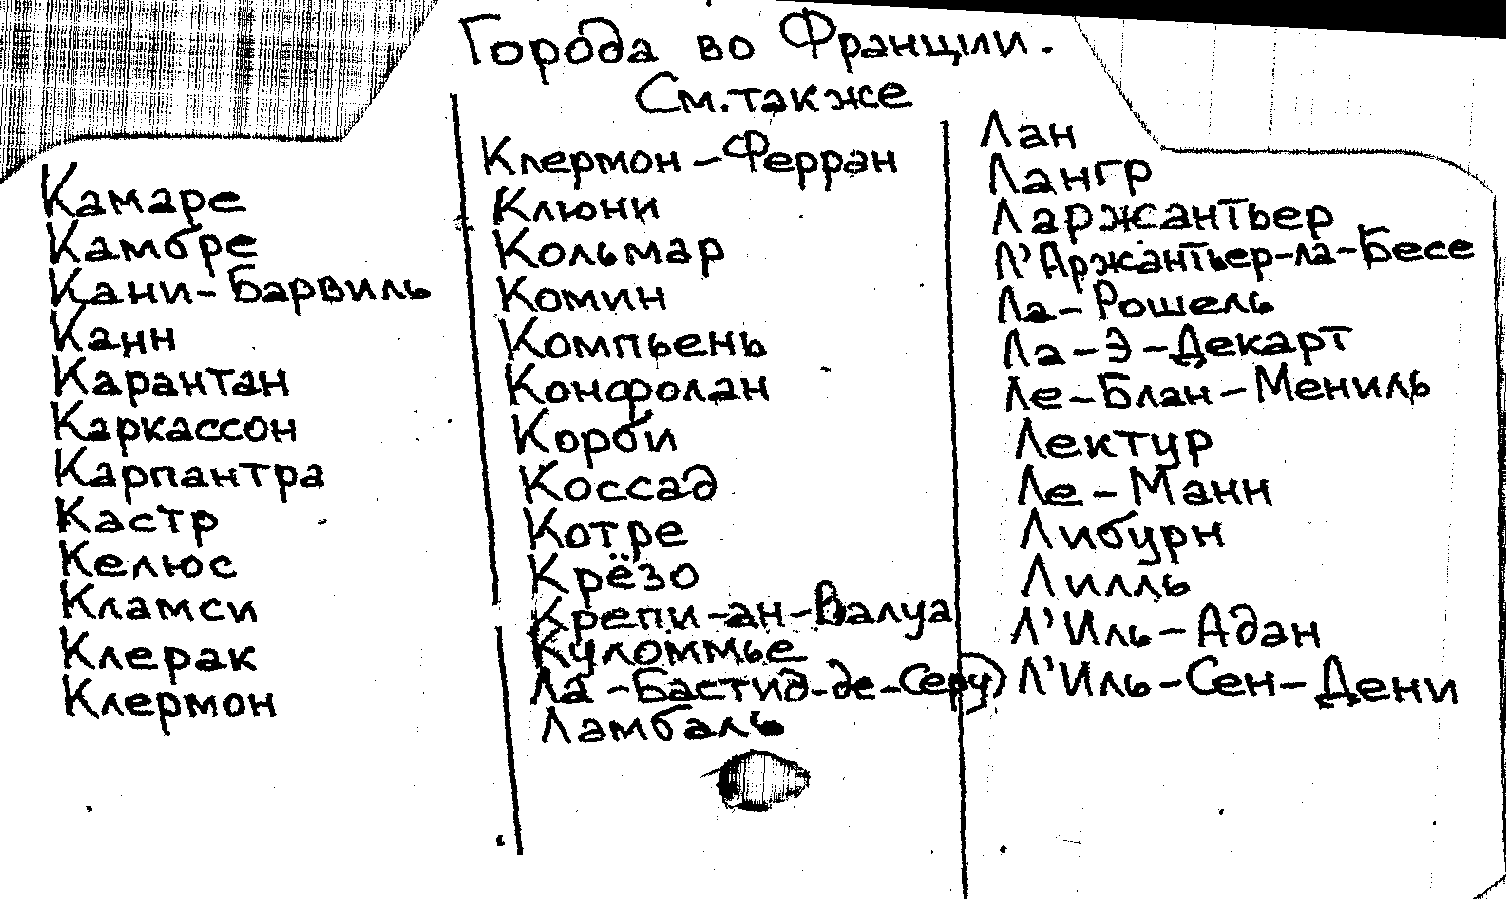 Города во Франции.
См. также
Камаре
Камбре
Кани-Барвиль
Канн
Карантан
Каркассон
Карпантра
Кастр
Келюс
Кламси
Клерак
Клермон
Клермон-Ферран
Клюни
Кольмар
Комин
Компьень
Конфолан
Корби
Коссад
Котре
Крёзо
Крепи-ан-Валуа
Куломмье
Ла-Бастид-де-Серу
Ламбаль
Лан
Лангр
Ларжантьер
Л'Аржантьер-ла-Бесе
Ла-Рошель
Ла-Э-Декарт
Ле-Блан-Мениль
Лектур
Ле-Манн
Либурн
Лилль
Л'Иль-Адан
Л'Иль-Сен-Дени